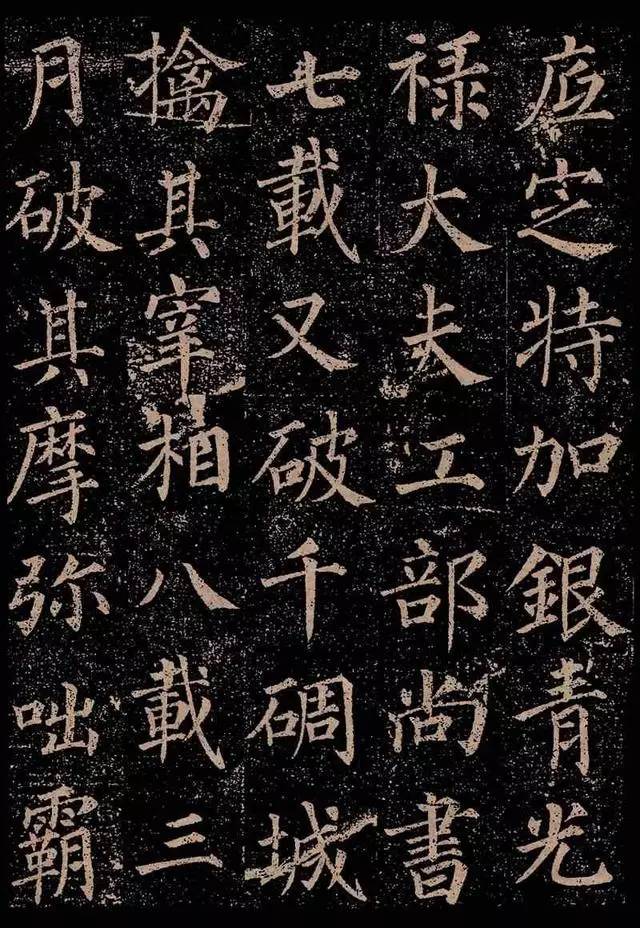 庭定特加銀青光
禄大夫工部尚書
七載又破千碉城
擒其宰相八載三
月破其摩弥咄霸